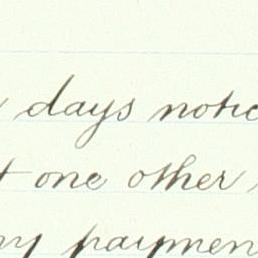 days notic
t one other
ny paymen